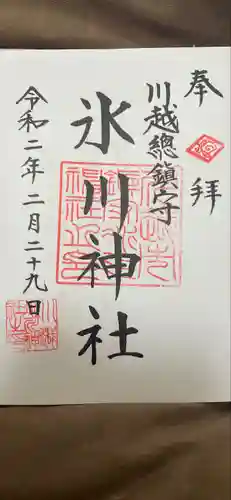 奉拝
川越總鎮守
氷川神社
令和二年二月二十九日